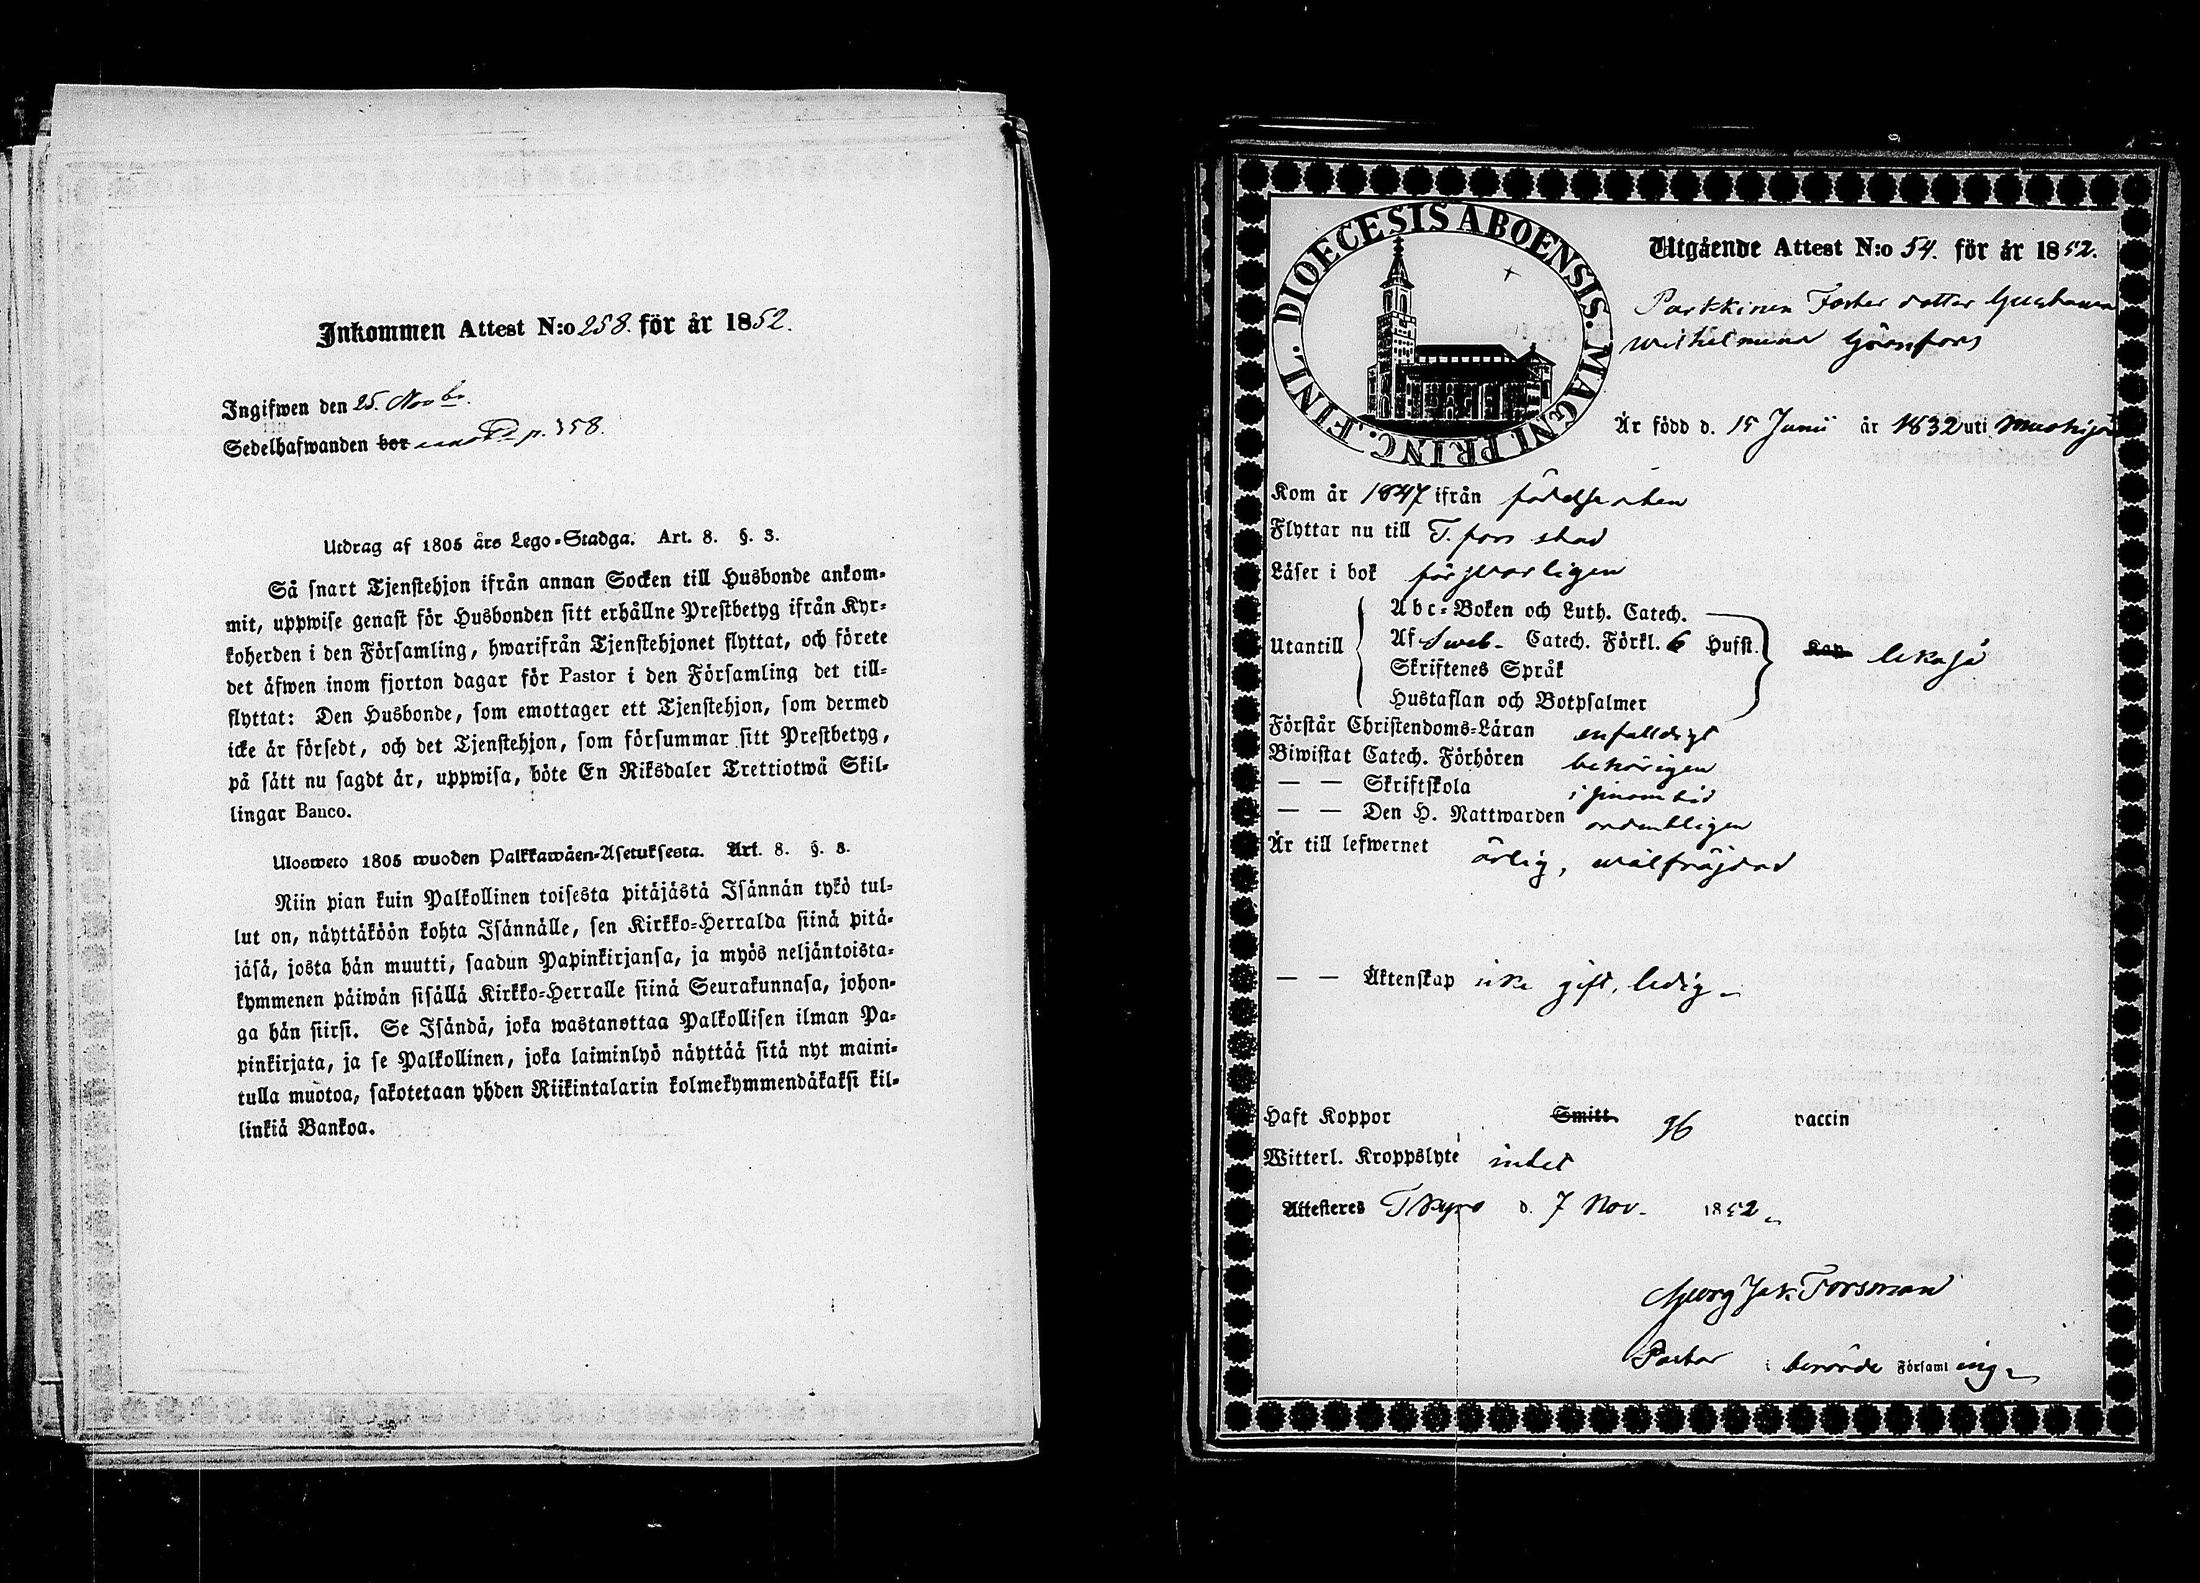 Inkommen Attest N:o 258. för år 1852.
Ingifwen den 25. Novbr.
Sedelhafwanden bor p. 358.
Utdrag af 1805 års Lego-Stadga. Art. 8. §. 3.
Så snart Tjenstehjon ifrån annan Socken till Husbonde ankom-
mit, uppwise genast för Husbonden sitt erhållne Prestbetyg ifrån Kyr-
koherden i den Församling, hwarifrån Tjenstehjonet flyttat, och förete
det äfwen inom fjorton dagar för Pastor i den Församling det till-
flyttat: Den Husbonde, som emottager ett Tjenstehjon, som dermed
icke är försedt, och det Tjenstehjon, som försummar sitt Prestbetyg,
på sätt nu sagdt är, uppwisa, böte En Riksdaler Trettiotwå Skil-
lingar Banco.
Ulosweto 1805 wuoden Palkkawäen-Asetuksesta. Art. 8. §. 3.
Niin pian kuin Palkollinen toisesta pitäjästä Isännän tykö tul-
lut on, näyttäköön kohta Isännälle, sen Kirkko-Herralda siinä pitä-
jäsä, josta hän muutti, saadun Papinkirjansa, ja myös neljäntoista-
kymmenen päiwän sisällä Kirkko-Herralle siinä Seurakunnasa, johon-
ga hän siirsi. Se Isändä, joka wastanottaa Palkollisen ilman Pa-
pinkirjata, ja se Palkollinen, joka laiminlyö näyttää sitä nyt maini-
tulla muotoa, sakotetaan yhden Riikintalarin kolmekymmendäkaksi kil-
linkiä Bankoa.
DIOECESIS ABOENSIS. MAGNI PRINC. FINL.
Utgående Attest N:o 54. för år 1852.
Parkkinen Foster dotter Gustava
Wilhelmina Grönfors
Är född d. 15 Junii år 1832 uti
Kom år 1847 ifrån födelseorten
Flyttar nu till T.fors stad
Läser i bok försvarligen
Abc-Boken och Luth. Catech.
Utantill Af Sweb. Catech. Förkl. 6 Hufst. Kap likaså
Skriftenes Språk
Hustaflan och Botpsalmer
Förstår Christendoms-Läran enfalldigt
Biwistat Catech. Förhören behörigen
— — Skriftskola i sinom tid
— — Den H. Nattwarden ordentligen
Är till lefwernet ärlig, wälfräjdad
— — Äktenskap icke gift, ledig
Haft Koppor Smitt. vaccin
Witterl. Kroppslyte intet
Attesteres TKyro d. 7 Nov. 1852
Georg Jak. Forsman
Pastor i berörde Församling